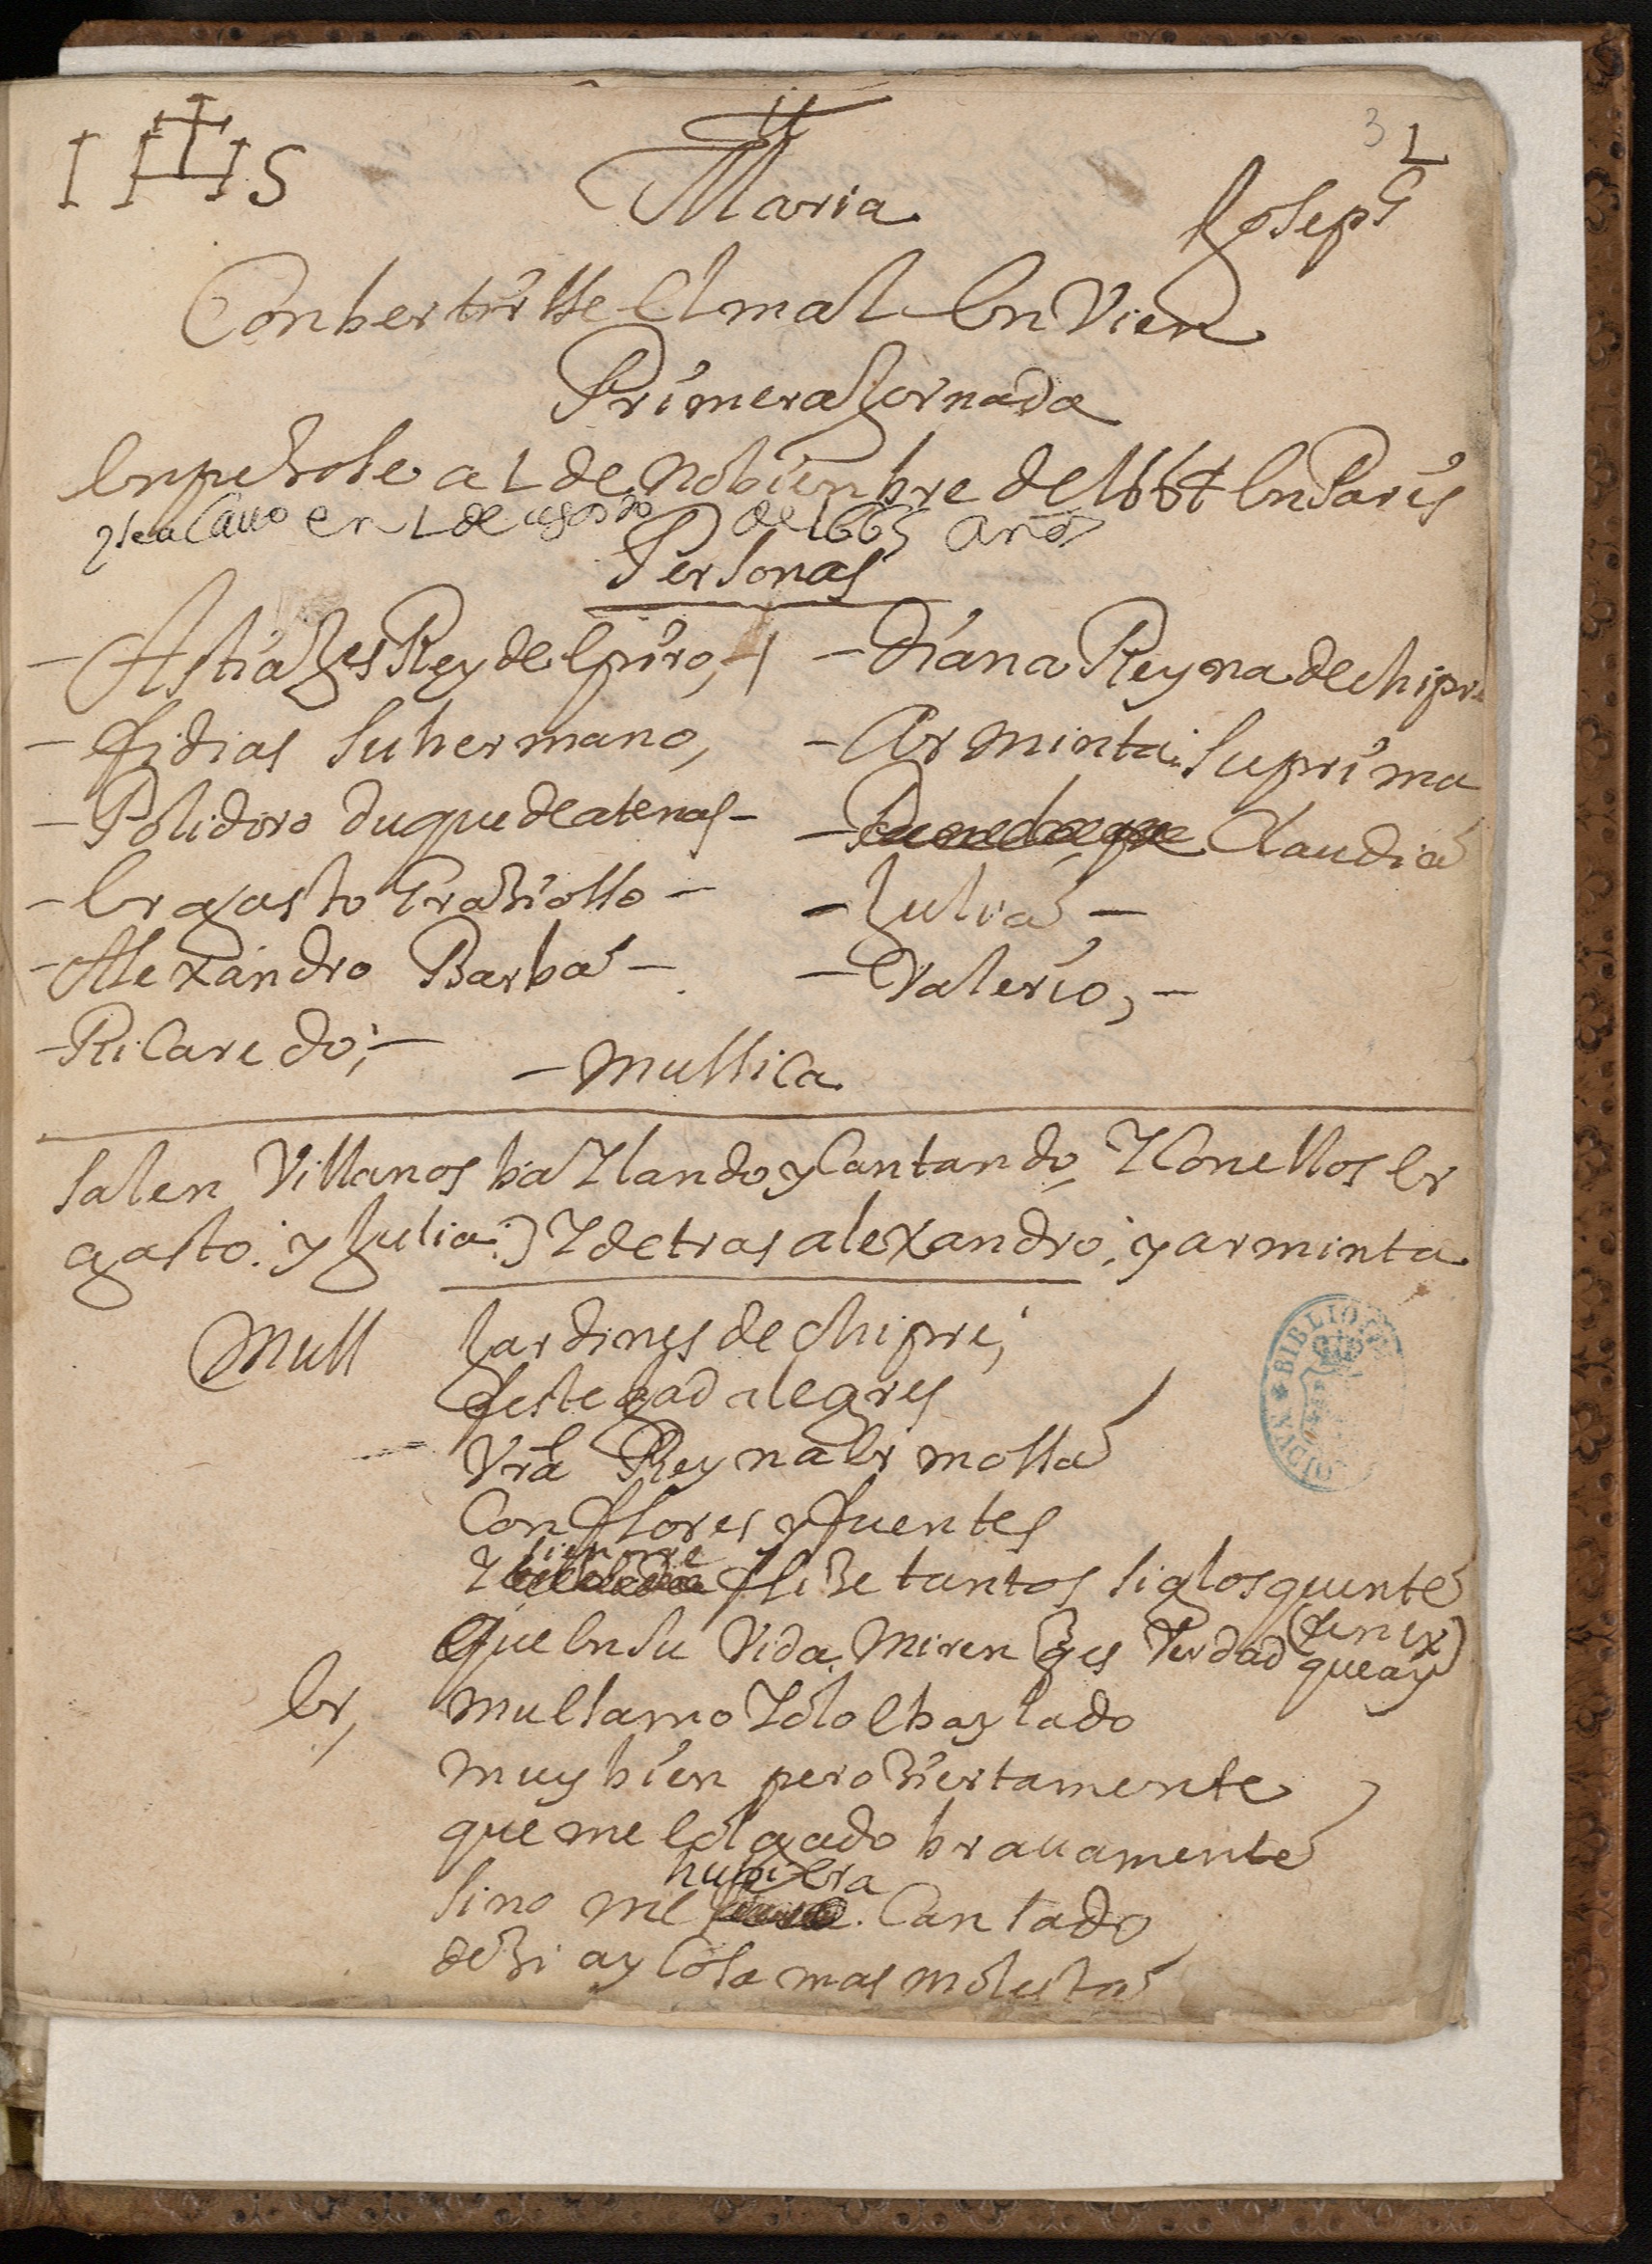 3 1
IHS
Maria
Joseph
Conbertirsse el mal en Vien
Primera Jornada
enpezose a 1 de nobienbre de 1664 en Paris
y se acauo en 1 de agosto de 1665 años
Personas
- Astiages Rey de epiro, - Diana Reyna de chipre
- fidias su hermano, - Arminta su prima
- Polidoro duque de atenas - - Claudia
- ergasto Graziosso - - Julia -
- Alexandro Barba - - Valerio, -
- Ricaredo; - - mussica
salen Villanos baylando y Cantando, y Con ellos er
gasto: y Julia: y detras alexandro; y arminta
Muss Jardines de chipre;
festejad alegres
Vra Reyna ermossa
Con flores y fuentes
Y siempre felize tantos siglos quente
Que en su Vida Miren (q es Verdad
(fenix
que ay)
er, mussamo Yo lo e baylado
muy bien pero ziertamente
que me e olgado brauamente
sino me hubiera Cantado
dezi ay Cosa mas molesta
BIBLIO